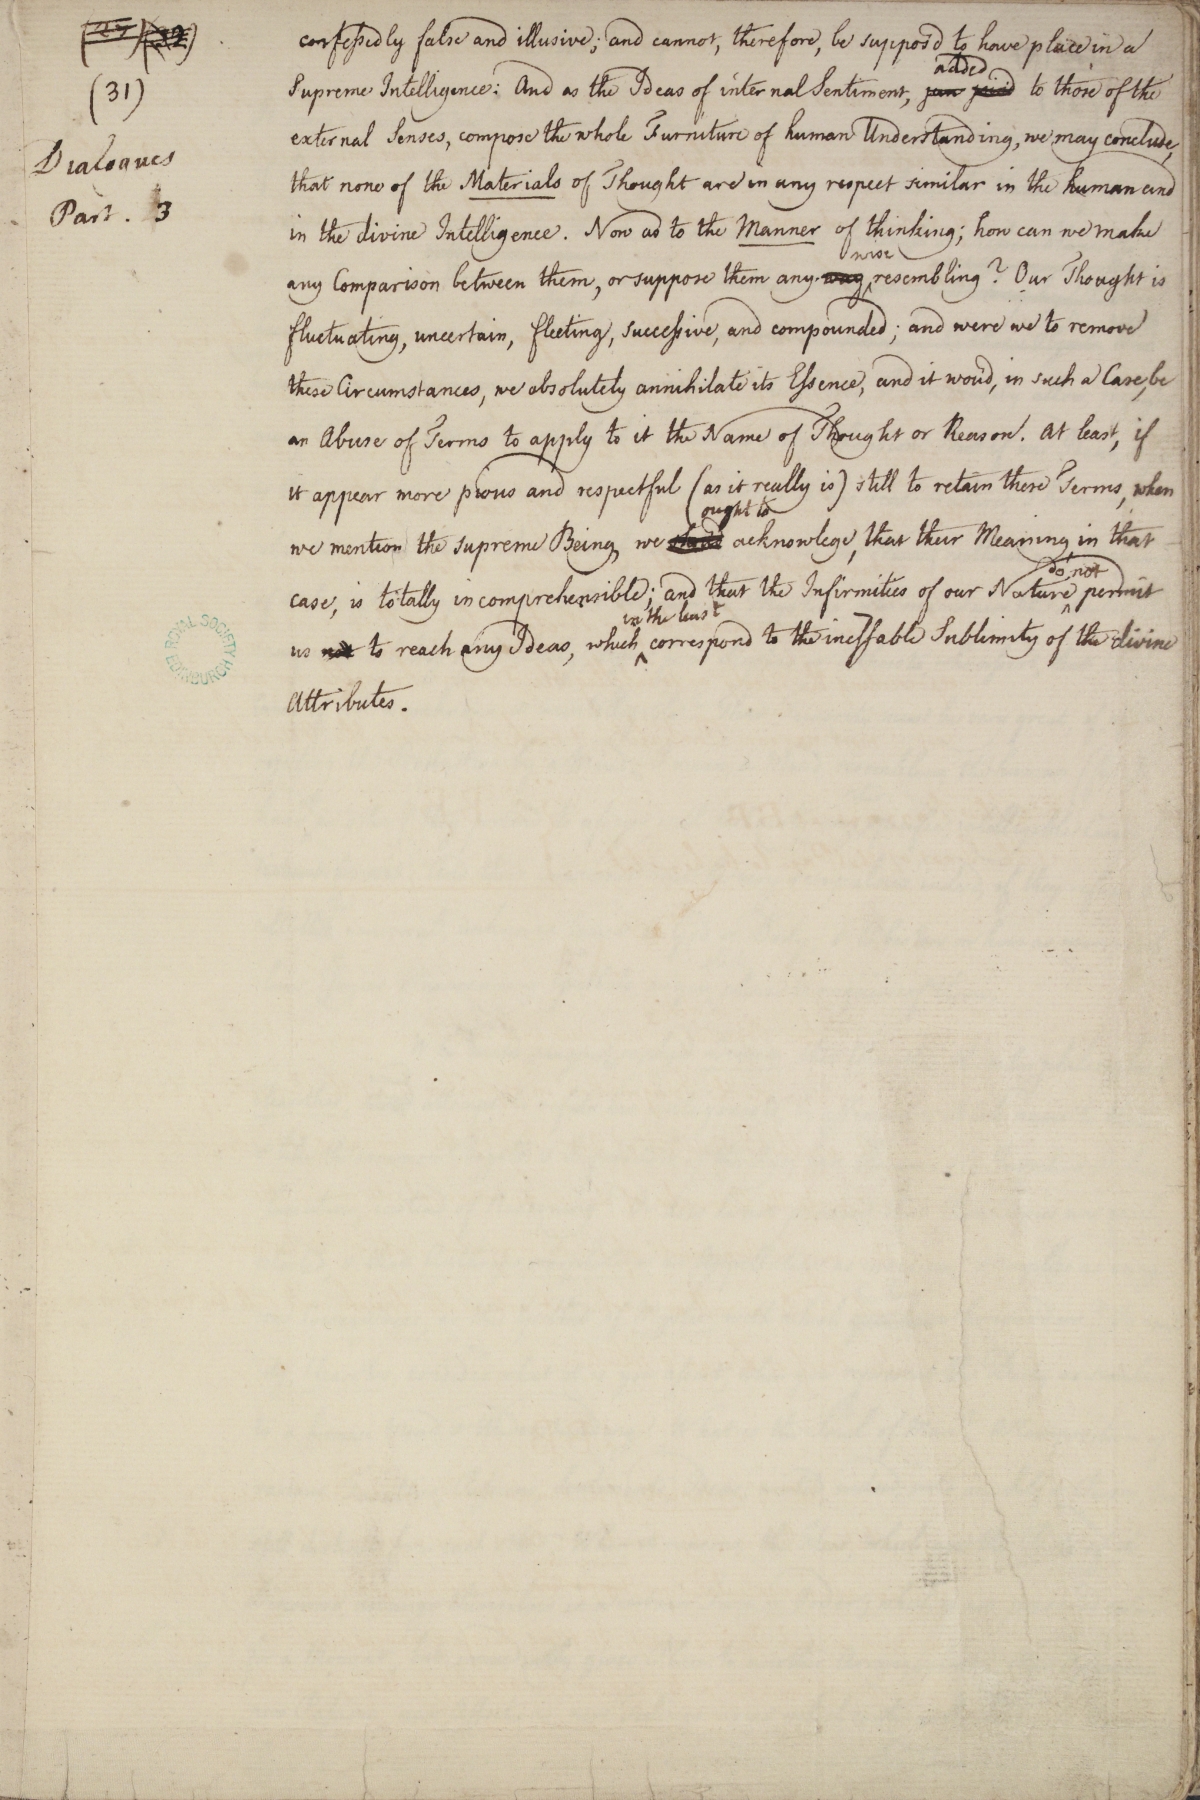 (31)
Dialogues
Part. 3
confessedly false and illusive; and cannot, therefore, be suppos'd to have place in a
added
Supreme Intelligence: And as the Ideas of internal Sentiment, to those of the
external Senses, compose the whole Furniture of human Understanding, we may conclude,
that none of the Materials of Thought are in any respect similar in the human and
in the divine Intelligence. Now as to the Manner of thinking; how can we make
wise
any Comparison between them, or suppose them any way resembling? Our Thought is
fluctuating, uncertain, fleeting, successive, and compounded; and were we to remove
these Circumstances, we absolutely annihilate its Essence, and it woud, in such a Case, be
an Abuse of Terms to apply to it the Name of Thought or Reason. At least, if
it appear more pious and respectful (as it really is) still to retain these Terms, when
ought to
we mention the supreme Being, we acknowlege, that their Meaning, in that
do not
case, is totally incomprehensible; and that the Infirmities of our Nature permit
in the least
us not to reach any Ideas, which correspond to the ineffable Sublimity of the divine
Attributes.
ROYAL SOCIETY
EDINBURGH